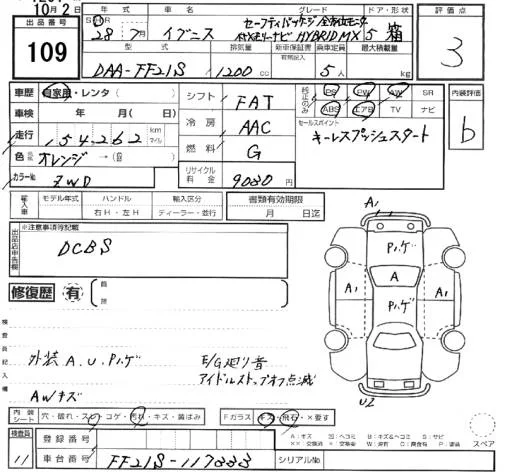 10月2日
出品番号 年式 車名 グレード ドア・形状 評価点
109
28年 7月 イグニス セーフティパッケージ 全方位モニター メモリーナビ HYBRID MX 5 箱 3
型式 排気量 新車保証書 乗車定員 最大積載量
DAA-FF21S 1200cc 有無記入 5人 kg
車歴 自家用・レンタ( )
シフト FAT
純正のみ PS PW AW SR
ABS エアB TV ナビ
内装評価 b
車検 年 月( 日)
冷房 AAC
セールスポイント
キーレスプッシュスタート
走行 154,262 km マイル
燃料 G
色 オレンジ →( )
リサイクル料金 9080円
カラーNo. ZWD
輸入車 モデル年式 ハンドル 輸入区分 書類有効期限
右H・左H ディーラー・並行 月 日迄
出品店申告欄 ※注意事項等記載
DCBS
修復歴 有
検査員記入欄
外装A.U.Pハゲ
E/G廻り音
アイドルストップオフ点滅
AWキズ
A1
Pハゲ
A
A1
Pハゲ
A1
U2
内装シート 穴・破れ・スレ・コゲ・汚れ・キズ・黄ばみ Fガラス キズ・飛石・×要す
検査員 11
登録番号
車台番号 FF21S-117883 シリアルNo
スペア